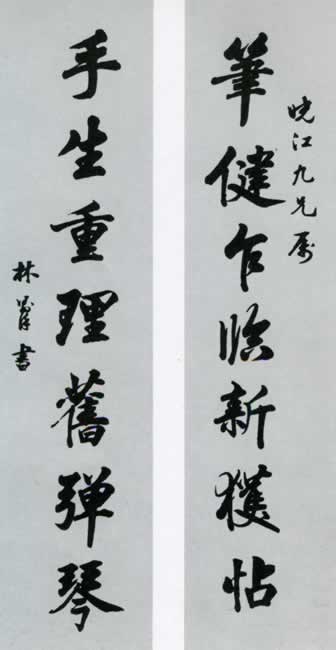 晓江九兄属
筆健乍临新獲帖
手生重理舊弹琴
林書